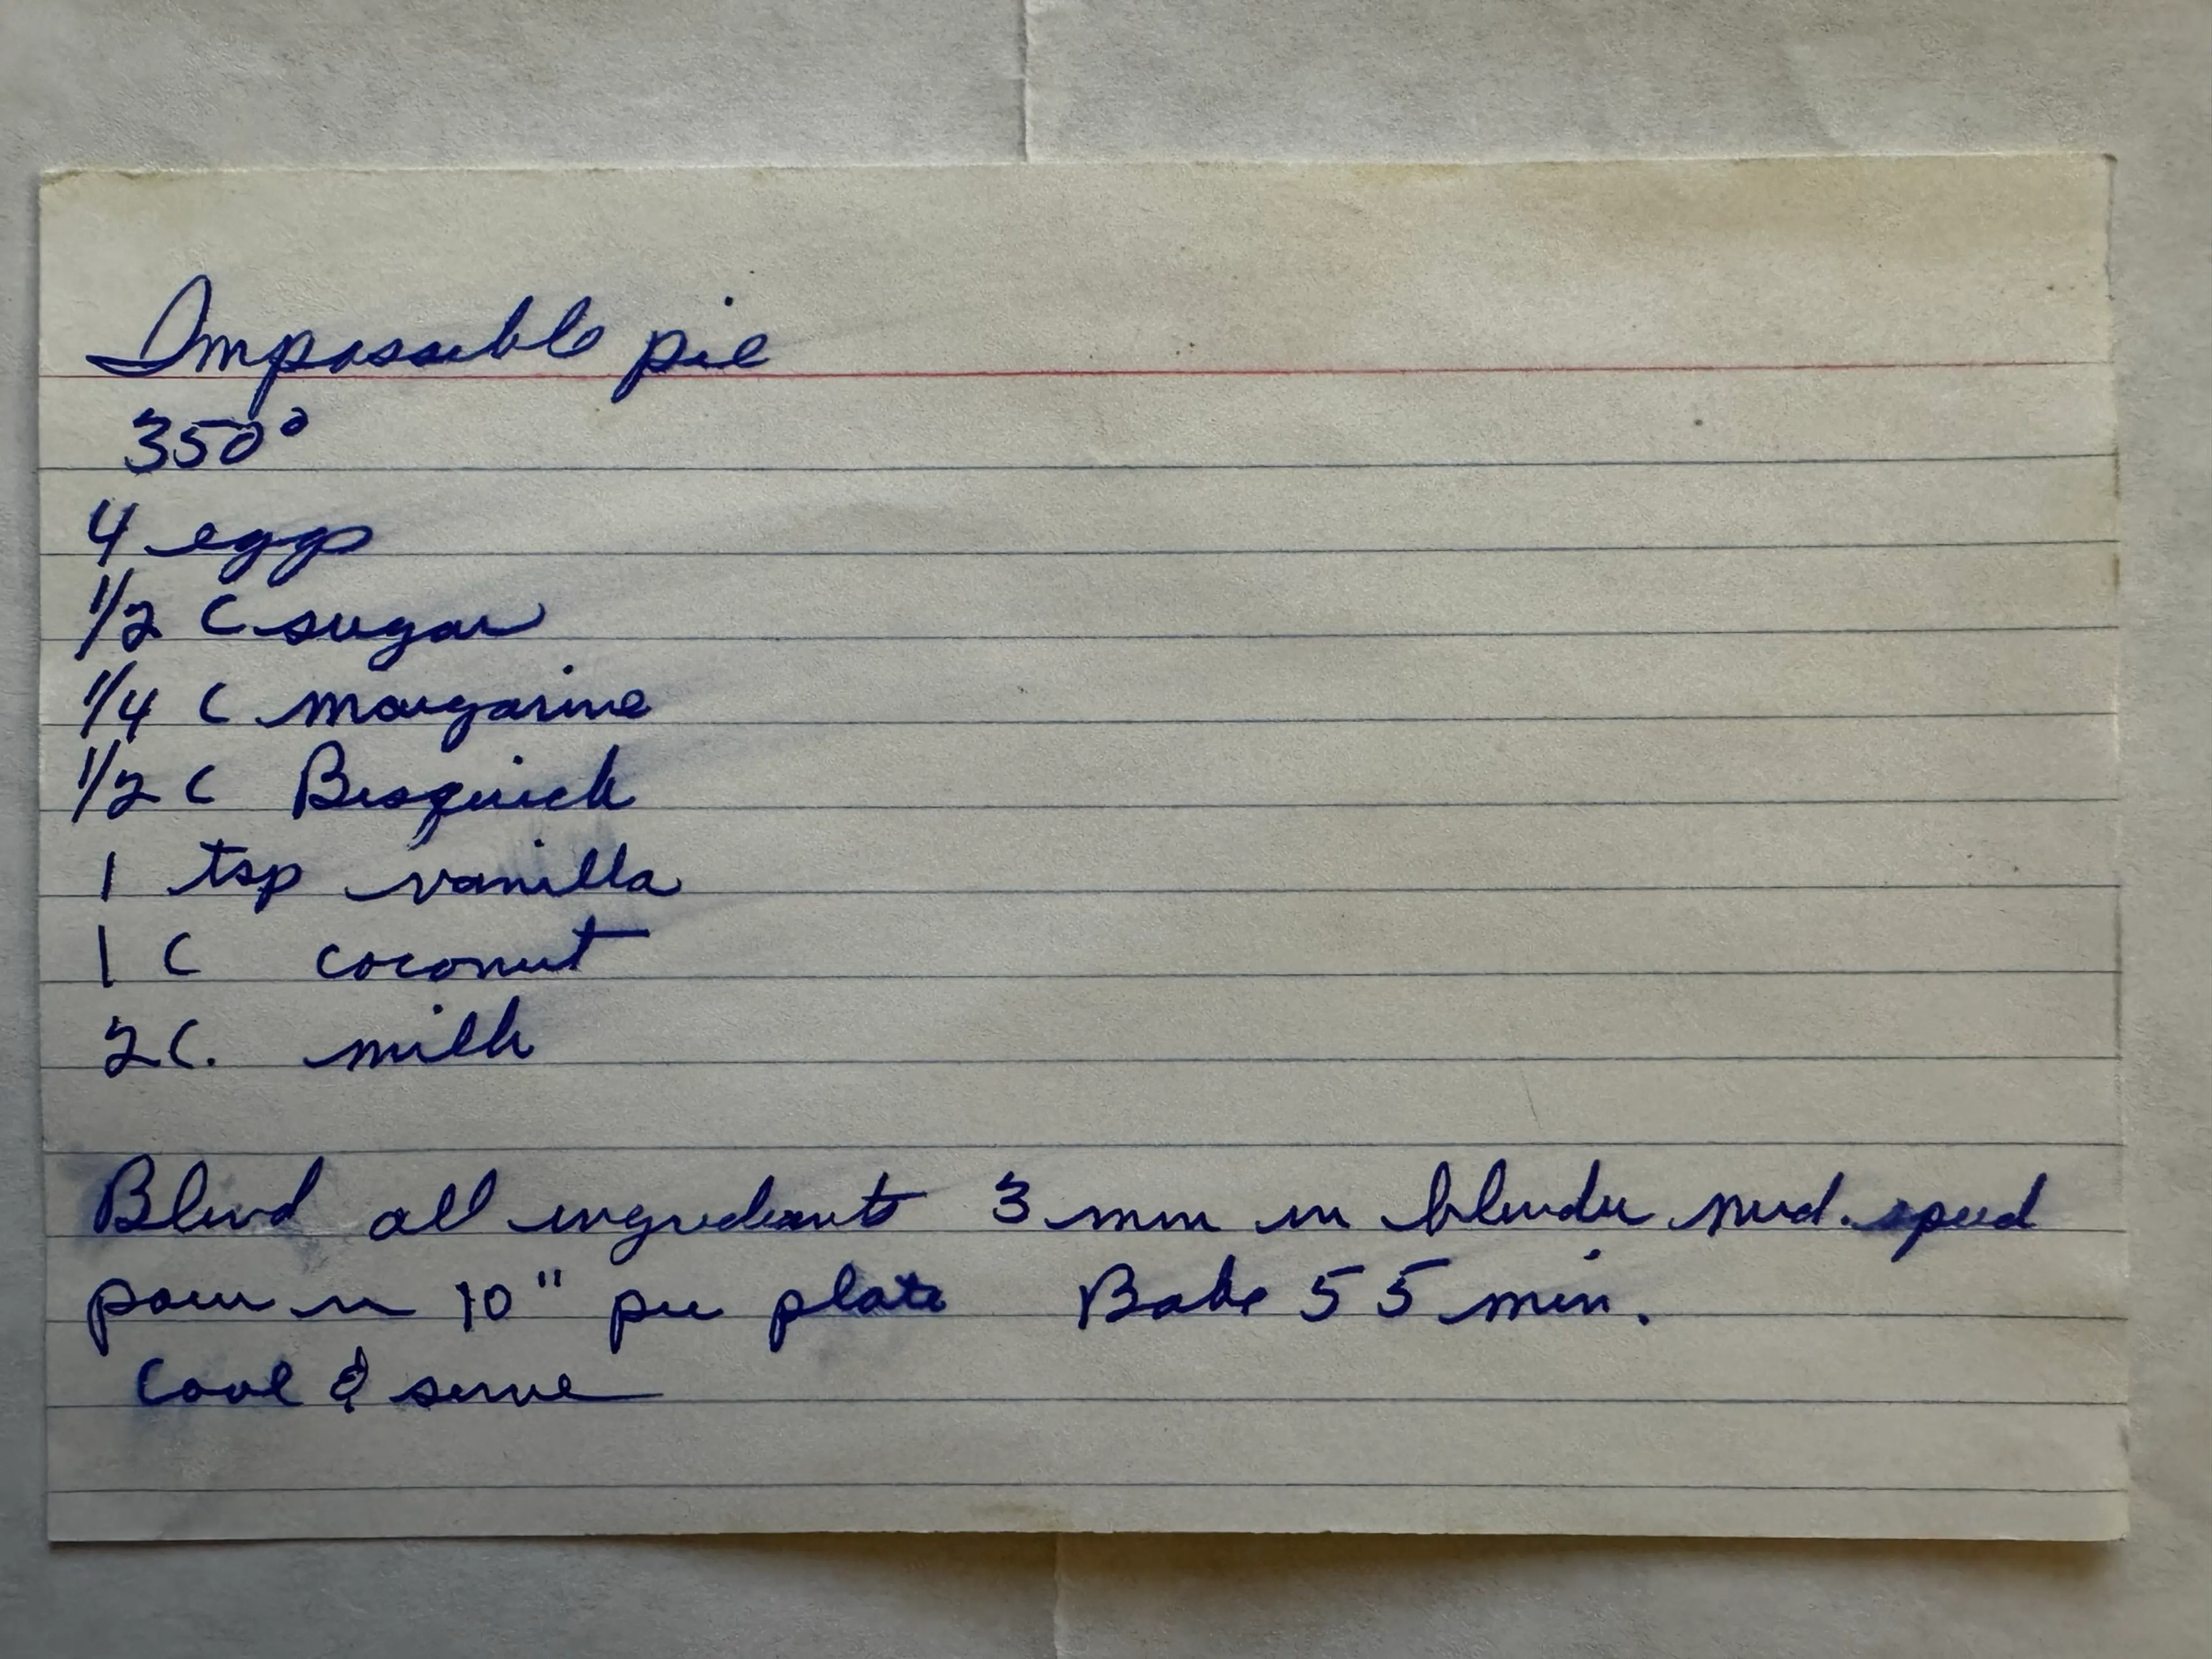 Impossible pie
350°
4 eggs
1/2 C sugar
1/4 C margarine
1/2 C Bisquick
1 tsp vanilla
1 C coconut
2 C. milk
Blend all ingredients 3 min in blender med. speed
pour in 10" pie plate Bake 55 min.
Cool & serve